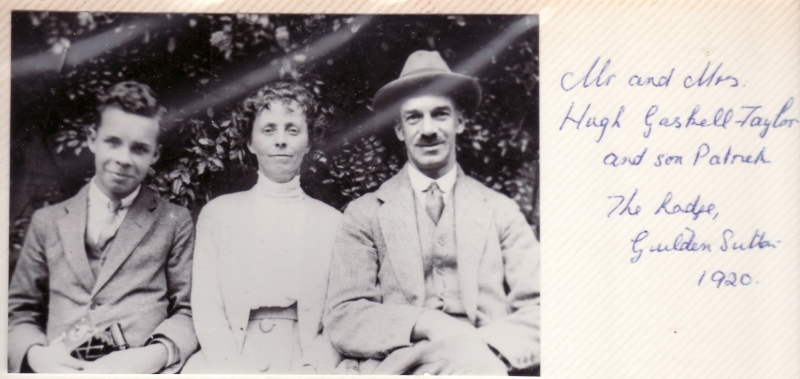 Mr and Mrs.
Hugh Gaskell-Taylor
and son Patrick
The Lodge,
Guilden Sutton
1920.